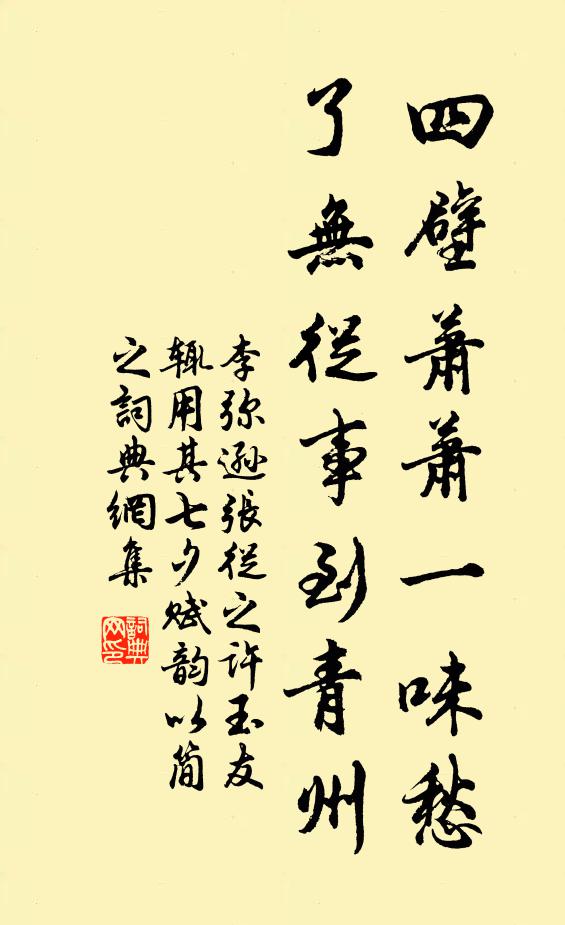 四壁蕭蕭一味愁
了無從事到青州
李弥遜張從之許玉友
輙用其七夕賦韵以简
之詞典網集
詞典网印